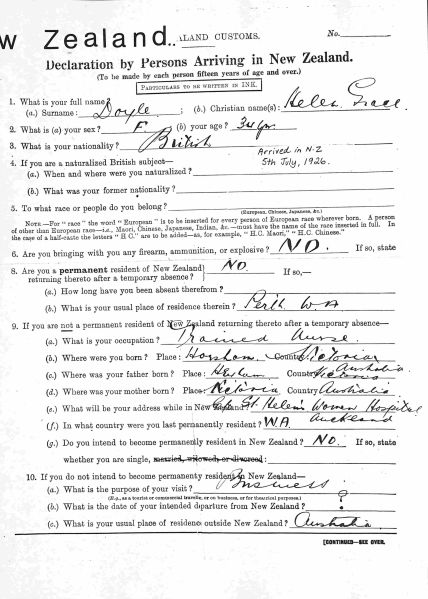 w Zealand.. ALAND CUSTOMS. No.
Declaration by Persons Arriving in New Zealand.
(To be made by each person fifteen years of age and over.)
PARTICULARS TO BE WRITTEN IN INK.
1. What is your full name?
(a.) Surname: Doyle ; (b.) Christian name(s): Helen Grace
2. What is (a) your sex? F. (b) your age? 34 yrs.
3. What is your nationality? British
Arrived in N.Z
5th July, 1926.
4. If you are a naturalized British subject—
(a.) When and where were you naturalized?
(b.) What was your former nationality?
5. To what race or people do you belong?
(European, Chinese, Japanese, &c.)
NOTE.—For "race" the word "European" is to be inserted for every person of European race wherever born. A person
of other than European race—i.e., Maori, Chinese, Japanese, Indian, &c.—must have the name of the race inserted in full. In
the case of a half-caste the letters "H C." are to be added—as, for example, "H.C. Maori," "H.C. Chinese."
6. Are you bringing with you any firearm, ammunition, or explosive? NO. If so, state
8. Are you a permanent resident of New Zealand
returning thereto after a temporary absence? NO. If so,—
(a.) How long have you been absent therefrom?
(b.) What is your usual place of residence therein? Perth W.A
9. If you are not a permanent resident of New Zealand returning thereto after a temporary absence—
(a.) What is your occupation? Trained Nurse
(b.) Where were you born? Place: Horsham Country Victoria
Australia
(c.) Where was your father born? Place: Country Victoria
(d.) Where was your mother born? Place: Victoria Country Australia
(e.) What will your address while in New Zealand? St Helens Women Hospital
Auckland
(f.) In what country were you last permanently resident? W.A.
(g.) Do you intend to become permanently resident in New Zealand? NO. If so, state
whether you are single, married, widowed or divorced:
10. If you do not intend to become permanenty resident in New Zealand—
(a.) What is the purpose of your visit? Business
(E.g., as a tourist or commercial traveller, or on business, or for theatrical purposes.)
(b.) What is the date of your intended departure from New Zealand? ?
(c.) What is your usual place of residence outside New Zealand? Australia
[CONTINUED—SEE OVER.